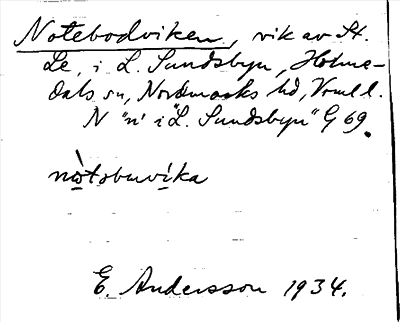 Notebodviken, vik av St.
Le, i L. Sundsbyn, Holme-
dals sn, Nordmarks hd, Vrml l.
N "n" i "L. Sundsbyn" G 69.
nòtobuvíka
E. Andersson 1934.